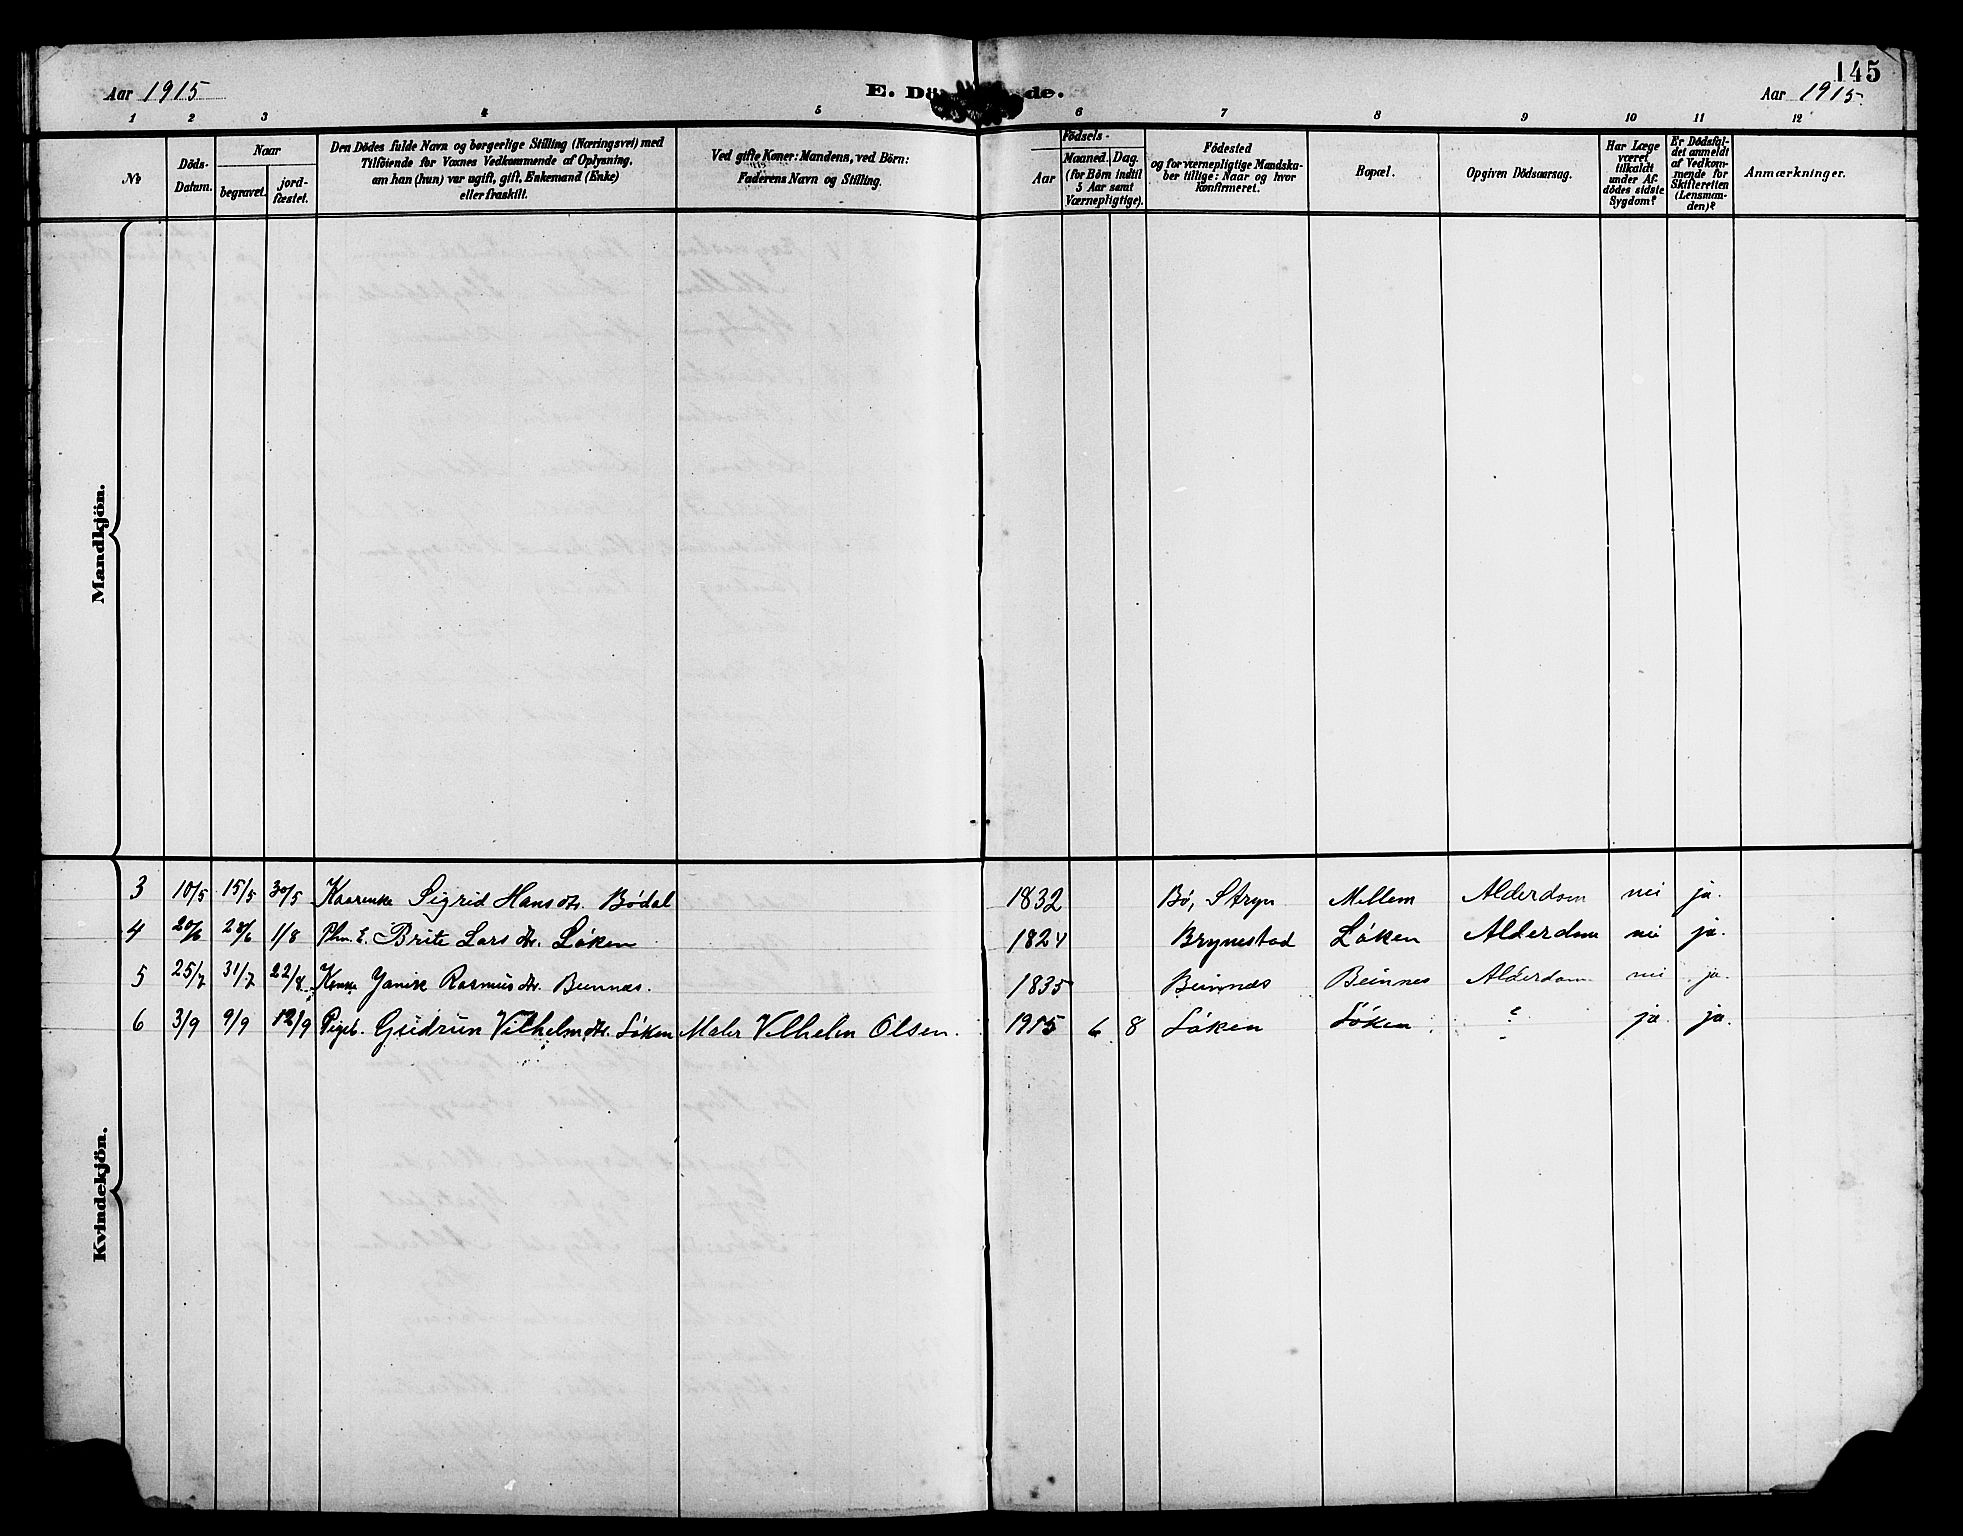 145
Aar 1915
E. Dö de.
Aar 1915
1 2 3 4 5 6 7 8 9 10 11 12
№
Döds-Datum.
Naar
begravet.
jord-fæstet.
Den Dödes fulde Navn og borgerlige Stilling (Næringsvei) med
Tilföiende for Voxnes Vedkommende af Oplysning,
om han (hun) var ugift, gift, Enkemand (Enke)
eller fraskilt.
Ved gifte Koner: Mandens, ved Börn:
Faderens Navn og Stilling.
Födsels-
Aar
Maaned. Dag.
(for Börn indtil
5 Aar samt
Værnepligtige).
Födested
og for værnepligtige Mandska-
ber tillige: Naar og hvor
konfirmeret.
Bopæl.
Opgiven Dödsaarsag.
Har Læge
været
tilkaldt
under Af-
dödes sidste
Sygdom?
Er Dödsfal-
det anmeldt
af Vedkom-
mende for
Skifteretten
(Lensman-
den)?
Anmærkninger.
Mandkjön.
Kvindekjön.
3 10/5 15/5 30/5 Kaarenke Sigrid Hansdtr. Bödal 1832 Bö, Stryn Mellem Alderdom nei ja.
4 20/6 28/6 1/8 Brite Larsdtr. Löken 1824 Brynestad Löken Alderdom nei ja.
5 25/7 31/7 22/8 Rasmusdtr. Beinnes. 1835 Beinnes Beinnes Alderdom nei ja.
6 3/9 9/9 12/9 Pigeb. Gudrun Vilhelmsdtr. Löken Maler Vilhelm Olsen. 1915 6 8 Löken Löken ? ja ja.